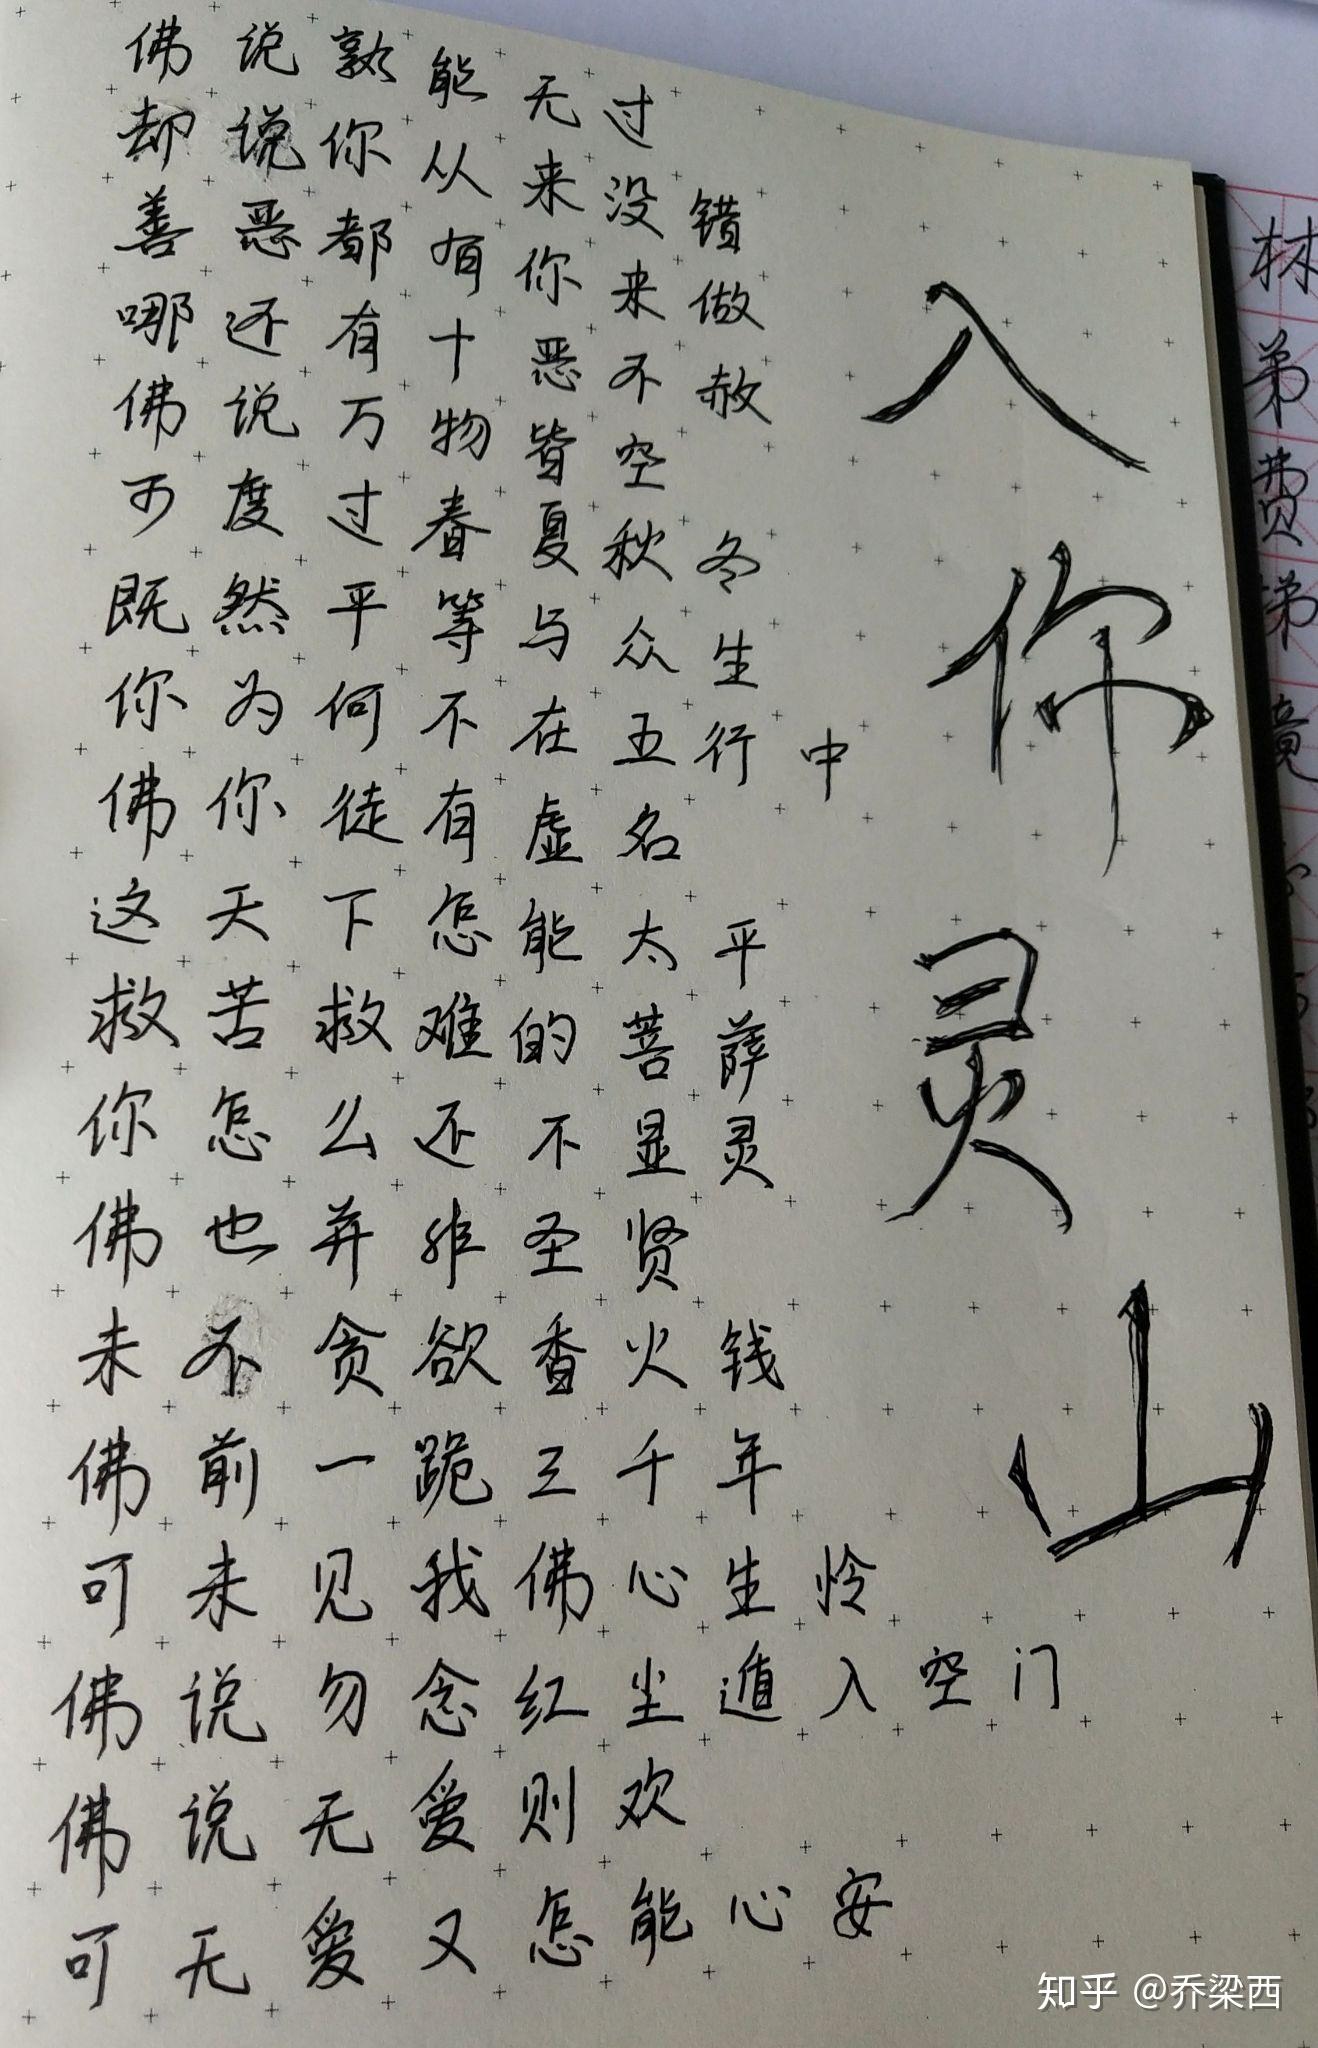 入你灵山
佛说孰能无过
却说你从来没错
善恶都有你来做
哪还有十恶不赦
佛说万物皆空
可度过春夏秋冬
既然平等与众生
你为何不在五行中
佛你徒有虚名
这天下怎能太平
救苦救难的菩萨
你怎么还不显灵
佛也并非圣贤
未不贪欲香火钱
佛前一跪三千年
可未见我佛心生怜
佛说勿念红尘遁入空门
佛说无爱则欢
可无爱又怎能心安
林弟费
知乎 @乔梁西